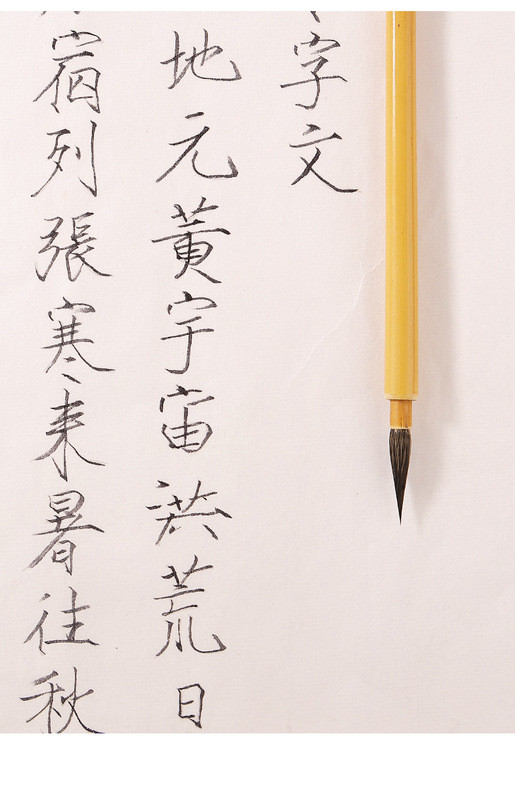 字文
地元黄宇宙洪荒日
宿列張寒来暑往秋